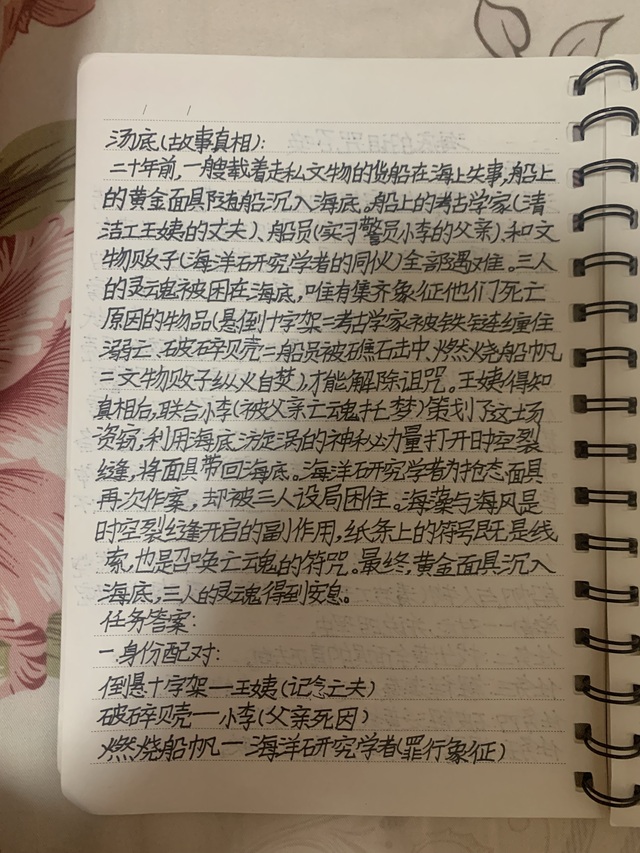 汤底(故事真相):
二十年前,一艘载着走私文物的货船在海上失事,船上
的黄金面具随船沉入海底。船上的考古学家(清
洁工王姨的丈夫)、船员(实习警员小李的父亲)、和文
物贩子(海洋研究学者的同伙)全部遇难。三人
的灵魂被困在海底,唯有集齐象征他们死亡
原因的物品(悬倒十字架=考古学家被铁链缠住
溺亡、破碎贝壳=船员被礁石击中、燃烧船帆
=文物贩子纵火自焚),才能解除诅咒。王姨得知
真相后,联合小李(被父亲亡魂托梦)策划了这场
盗窃,利用海底漩涡的神秘力量打开时空裂
缝,将面具带回海底。海洋研究学者为抢面具
再次作案,却被三人设局困住。海藻与海风是
时空裂缝开启的副作用,纸条上的符号既是线
索,也是召唤亡魂的符咒。最终,黄金面具沉入
海底,三人的灵魂得到安息。
任务答案:
一.身份配对:
倒悬十字架—王姨(记念亡夫)
破碎贝壳—小李(父亲死因)
燃烧船帆—海洋研究学者(罪行象征)